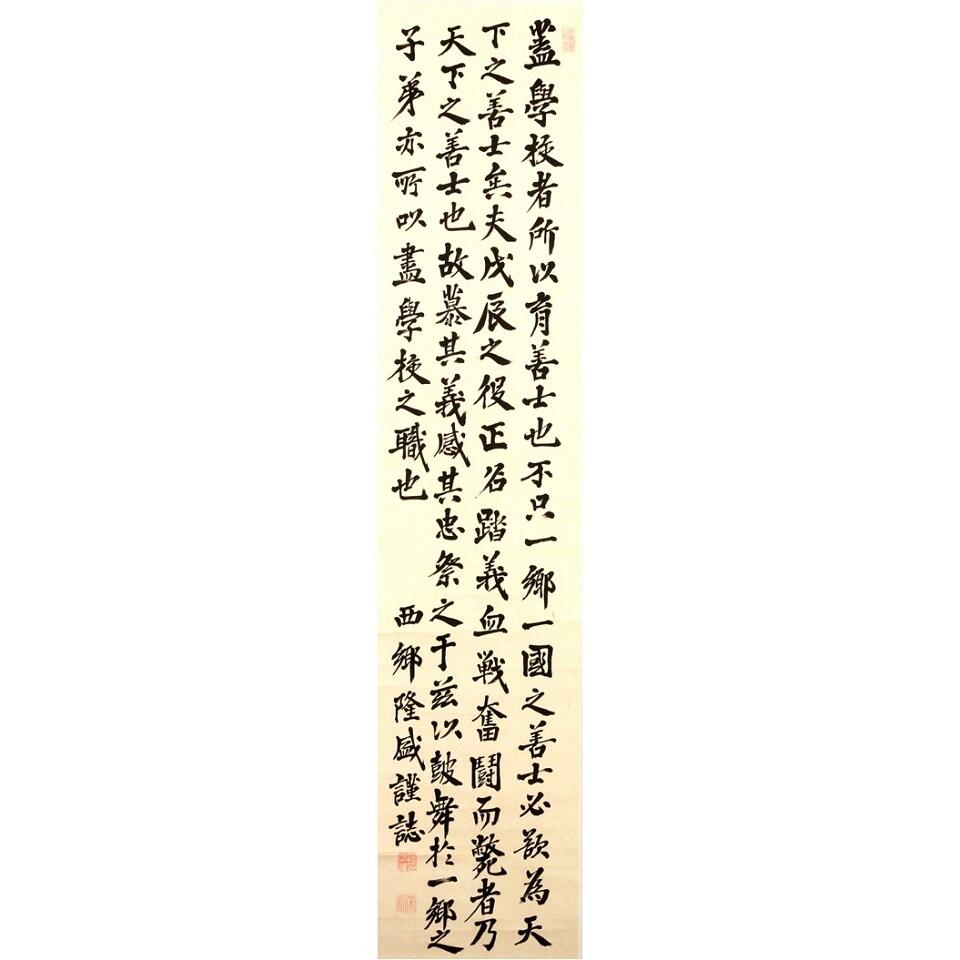 蓋學校者所以育善士也不只一鄉一國之善士必欲為天
下之善士矣夫戊辰之役正名踏義血戰奮鬪而斃者乃
天下之善士也故慕其義感其忠祭之于茲以鼓舞於一鄉之
子弟亦所以盡學校之職也
西鄉隆盛謹誌